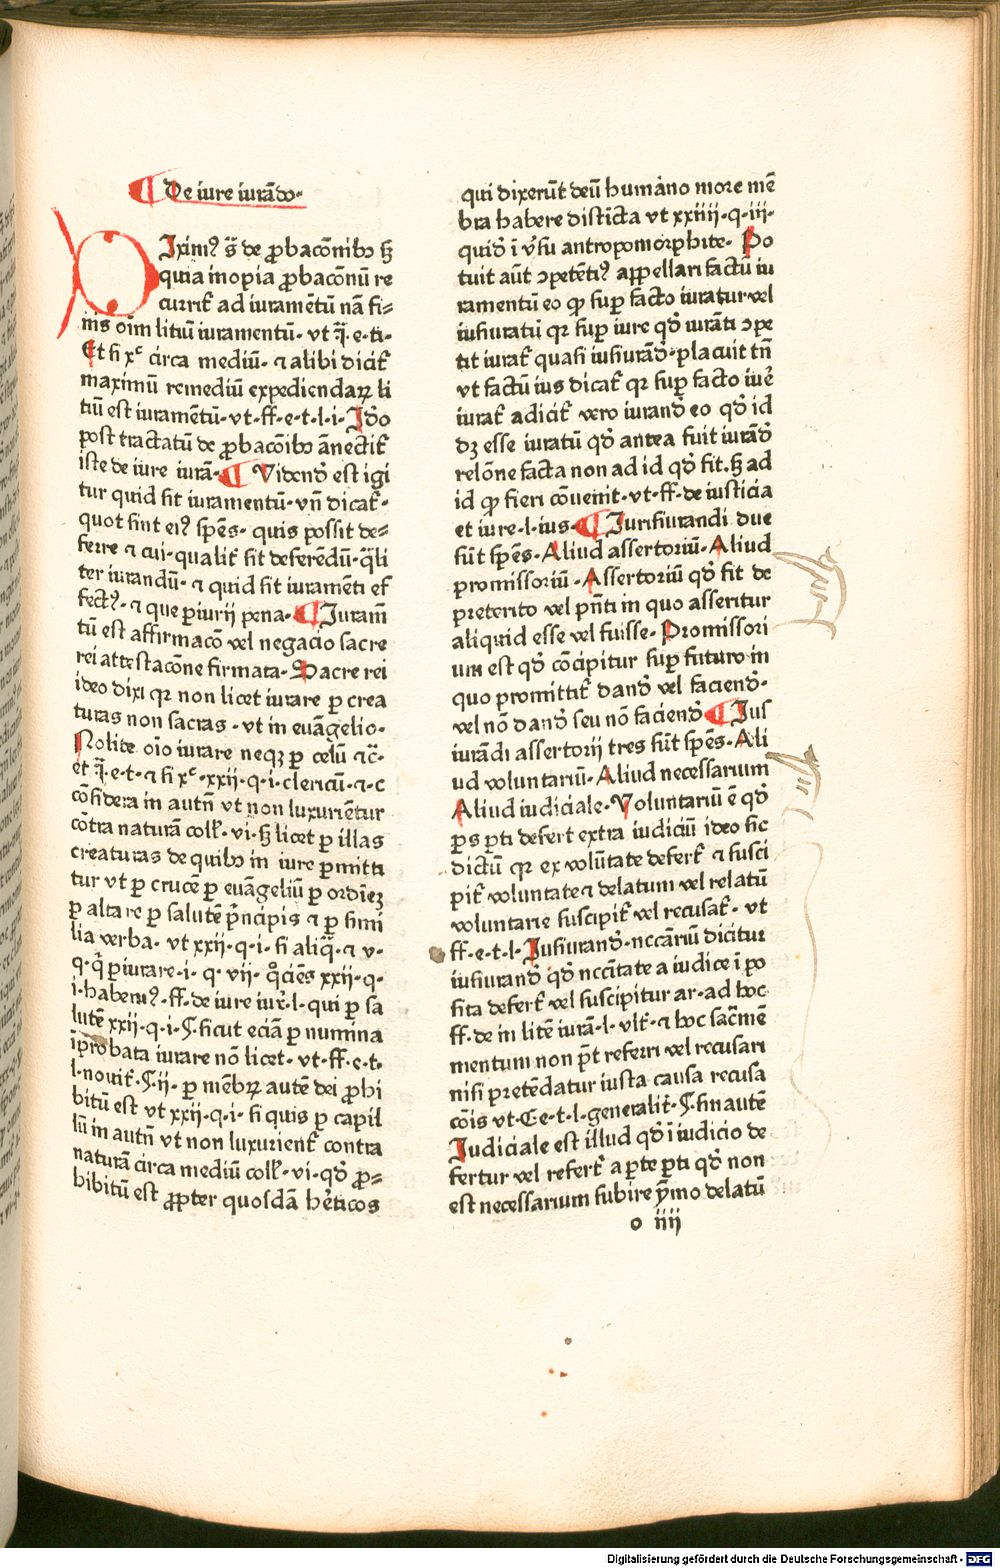 De iure iurādo·
Diximꝰ s̄ de ꝓbacōnibꝫ sꝫ
quia inopia ꝓbacōnū re
currit̉ ad iuramētū nā fi⸗
nis oīm litiū iuramentū· vt q̄·e·ti·
Et fi xͨ circa mediū· ⁊ alibi dicit̉
maximū remediū expediendaꝝ li
tiū est iuramētū·vt·ff·e·t·l·i·Ido
post tractatū de ꝓbacōibꝫ ānectit̉
iste de iure iurā· Vidend̄ est igi
tur quid sit iuramentū·vn̄ dicat̉·
quot sint eiꝰ spēs· quis possit de⸗
ferre ⁊ cui·qualit̉ sit deferēdū·q̄li
ter iurandū· ⁊ quid sit iuramēti ef
fectꝰ· ⁊ que piurij pena· Iuram̄
tū est affirmacō vel negacio sacre
rei attestacōne firmata· Sacre rei
ideo dixi qꝛ non licet iurare ꝑ crea
turas non sacras · vt in euāgelio·
Nolite oīo iurare neqꝫ ꝑ celū ⁊c̄·
et q̄·e·t·⁊ fi xͨ·xxij·q·i·clericū·⁊·c
cōsidera in autn̄ vt non luxuriētur
cōtra naturā coll̄·vi·sꝫ licet ꝑ illas
creaturas de quibꝫ in iure ꝑmitti
tur vt ꝑ crucē ꝑ euāgeliū ꝑ ordiēꝫ
ꝑ altare ꝑ salutē p̄ncipis ⁊ ꝑ simi
lia verba· vt xxij·q·i·si aliq̄·⁊ v·
q·q̄ ꝑiurare·i·q·vij·q̊ciēs xxij·q·
i·habemꝰ·ff·de iure iuꝛ̄·l·qui ꝑ sa
lutē xxij·q·i·§·sicut eciā ꝑ numina
īprobata iurare nō licet·vt·ff·e·t·
l·nouit̉·§·ij· ꝑ mēbꝝ autē dei ꝓhi
bitū est vt xxij·q·i· si quis ꝑ capil
lū in autn̄ vt non luxurient̉ contra
naturā circa mediū coll̄·vi·qd̉ ꝓ⸗
hibitū est ꝓpter quosdā hēticos
qui dixerūt deū humano more mē
bra habere disticta vt xxiiij·q·iij·
quid̄ ī v̉su antropomorphite· Po
tuit aūt ꝯpetētiꝰ appellari factū iu
ramentū eo ꝙ suꝑ facto iuratur vel
iusiuratū qꝛ suꝑ iure qd̉ iurāti ꝯpe
tit iurat̉ quasi iusiurād̄·placuit tn̄
vt factū ius dicat̉ qꝛ suꝑ facto iue̓
iurat̉ adicit̉ vero iurand̄ eo qd̉ id
dꝫ esse iuratū qd̉ antea fuit iurād̄
relōne facta non ad id qd̉ fit·sꝫ ad
id ꝙ fieri cōuenit·vt·ff·de iusticia
et iure·l·ius· Iurisiurandi due
sūt spēs· Aliud assertoriū· Aliud
promissoriū · Assertoriū qd̉ fit de
preterito vel pn̄ti in quo asseritur
aliquid esse vel fuisse· Promissori
um est qd̉ cōcipitur suꝑ futuro in
quo promittit̉ dand̄ vel faciend̄·
vel nō dand̄ seu nō faciend̄ Ius
iurādi assertorij tres sūt spēs· Ali
ud voluntariū· Aliud necessarium
Aliud iudiciale· Voluntariū ē qd̉
ꝑs ꝑti defert extra iudiciū ideo sic
dictū qꝛ ex volūtate defert̉ ⁊ susci
pit̉ voluntate ⁊ delatum vel relatū
voluntarie suscipit̉ vel recusat̉· vt
ff·e·t·l· Iusiurand̄·nccāriū dicitur
iusiurand̄ qd̉ nccītate a iudice ī po
sita defert̉ vel suscipitur ar·ad hoc
ff·de in litē iurā·l·vlt̉·⁊ hoc sac̄mē
mentum non pt̄ referri vel recusari
nisi pretēdatur iusta causa recusa
cōis vt·Ce·t·l·generalit̉·§·sin autē
Iudiciale est illud qd̉ ī iudicio de
fertur vel refert̉ a ꝑte ꝑti qd̉ non
est necessarium subire ymo delatū
o iiij
Digitalisierung gefördert durch die Deutsche Forschungsgemeinschaft - DFG